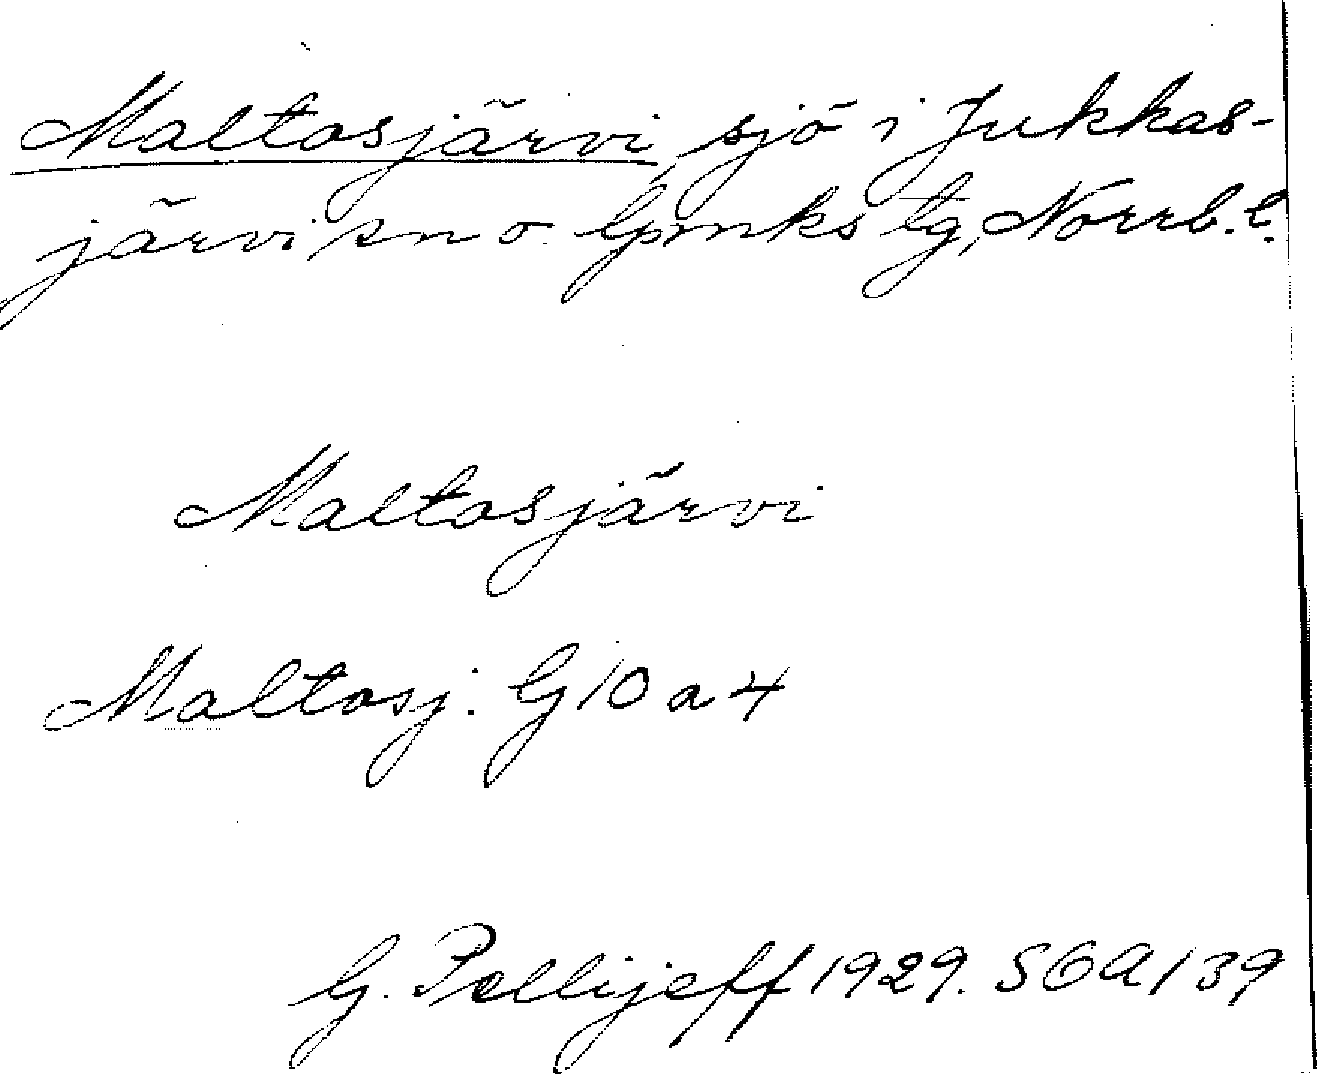 Maltosjärvi, sjö i Jukkas-
järvi sn o. lpmks tg, Norrb. l.
Maltosjärvi
Maltosj: G 10 a 4
G. Pellijeff 1929. SOA 139